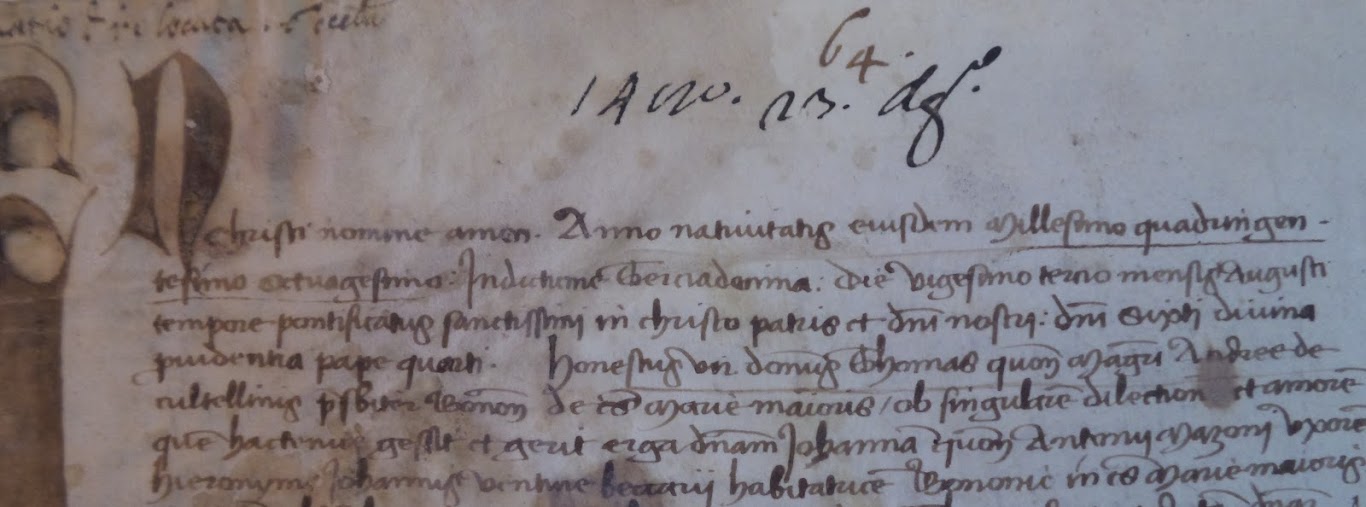 64.
23.
N Christi nomine amen. Anno nativitatis eiusdem Millesimo quadringen-
tesimo octuagesimo: Indictione Terciadecima: die vigesimo tercio mensis Augusti
tempore pontificatus sanctissimi in christo patris et dnī nostri: dnī Sixti divina
pvidentia pape quarti. Honestus vir domnus Thomas quonđ Magrī Andree de
cultellinis psbiter Bonon de Marie maioris / ob singularē dilection et amorē
quē hactenus gessit et gerit erga dnam Johannā quonđ Antonii Mazoni uxorē
Hieronymi Johannis venture beccarii habitatricē Bononie in Marie maioris